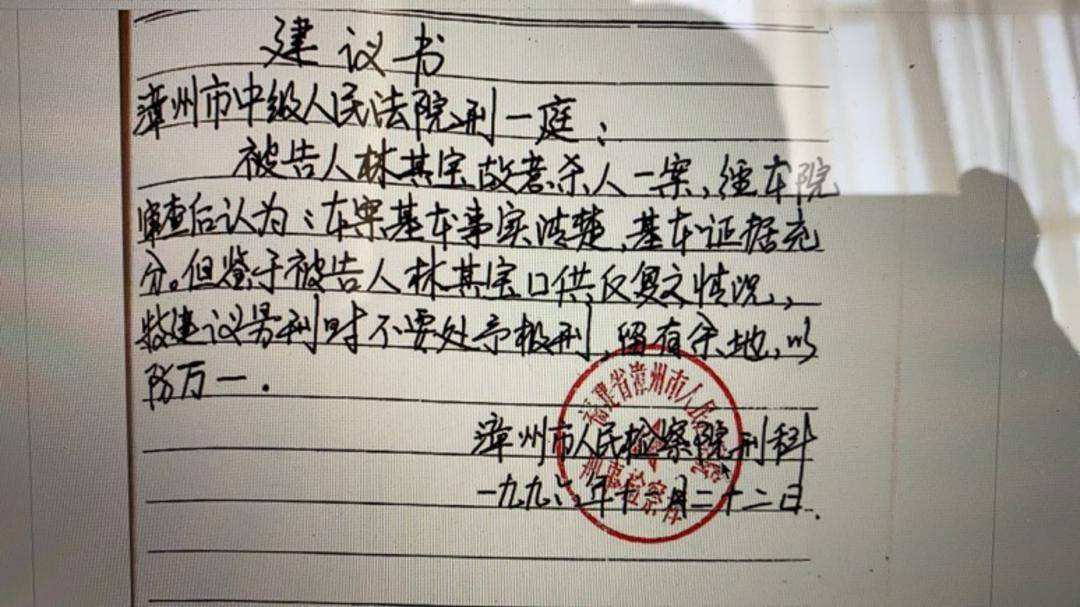 建议书
漳州市中级人民法院刑一庭：
被告人林其宝故意杀人一案，经本院
审查后认为：本案基本事实清楚，基本证据充
分。但鉴于被告人林其宝口供反复之情况，
特建议量刑时不要处予极刑，留有余地，以
防万一.
福建省漳州市人民
漳州市人民检察院刑科
刑事检察
一九九六年十一月二十二日.